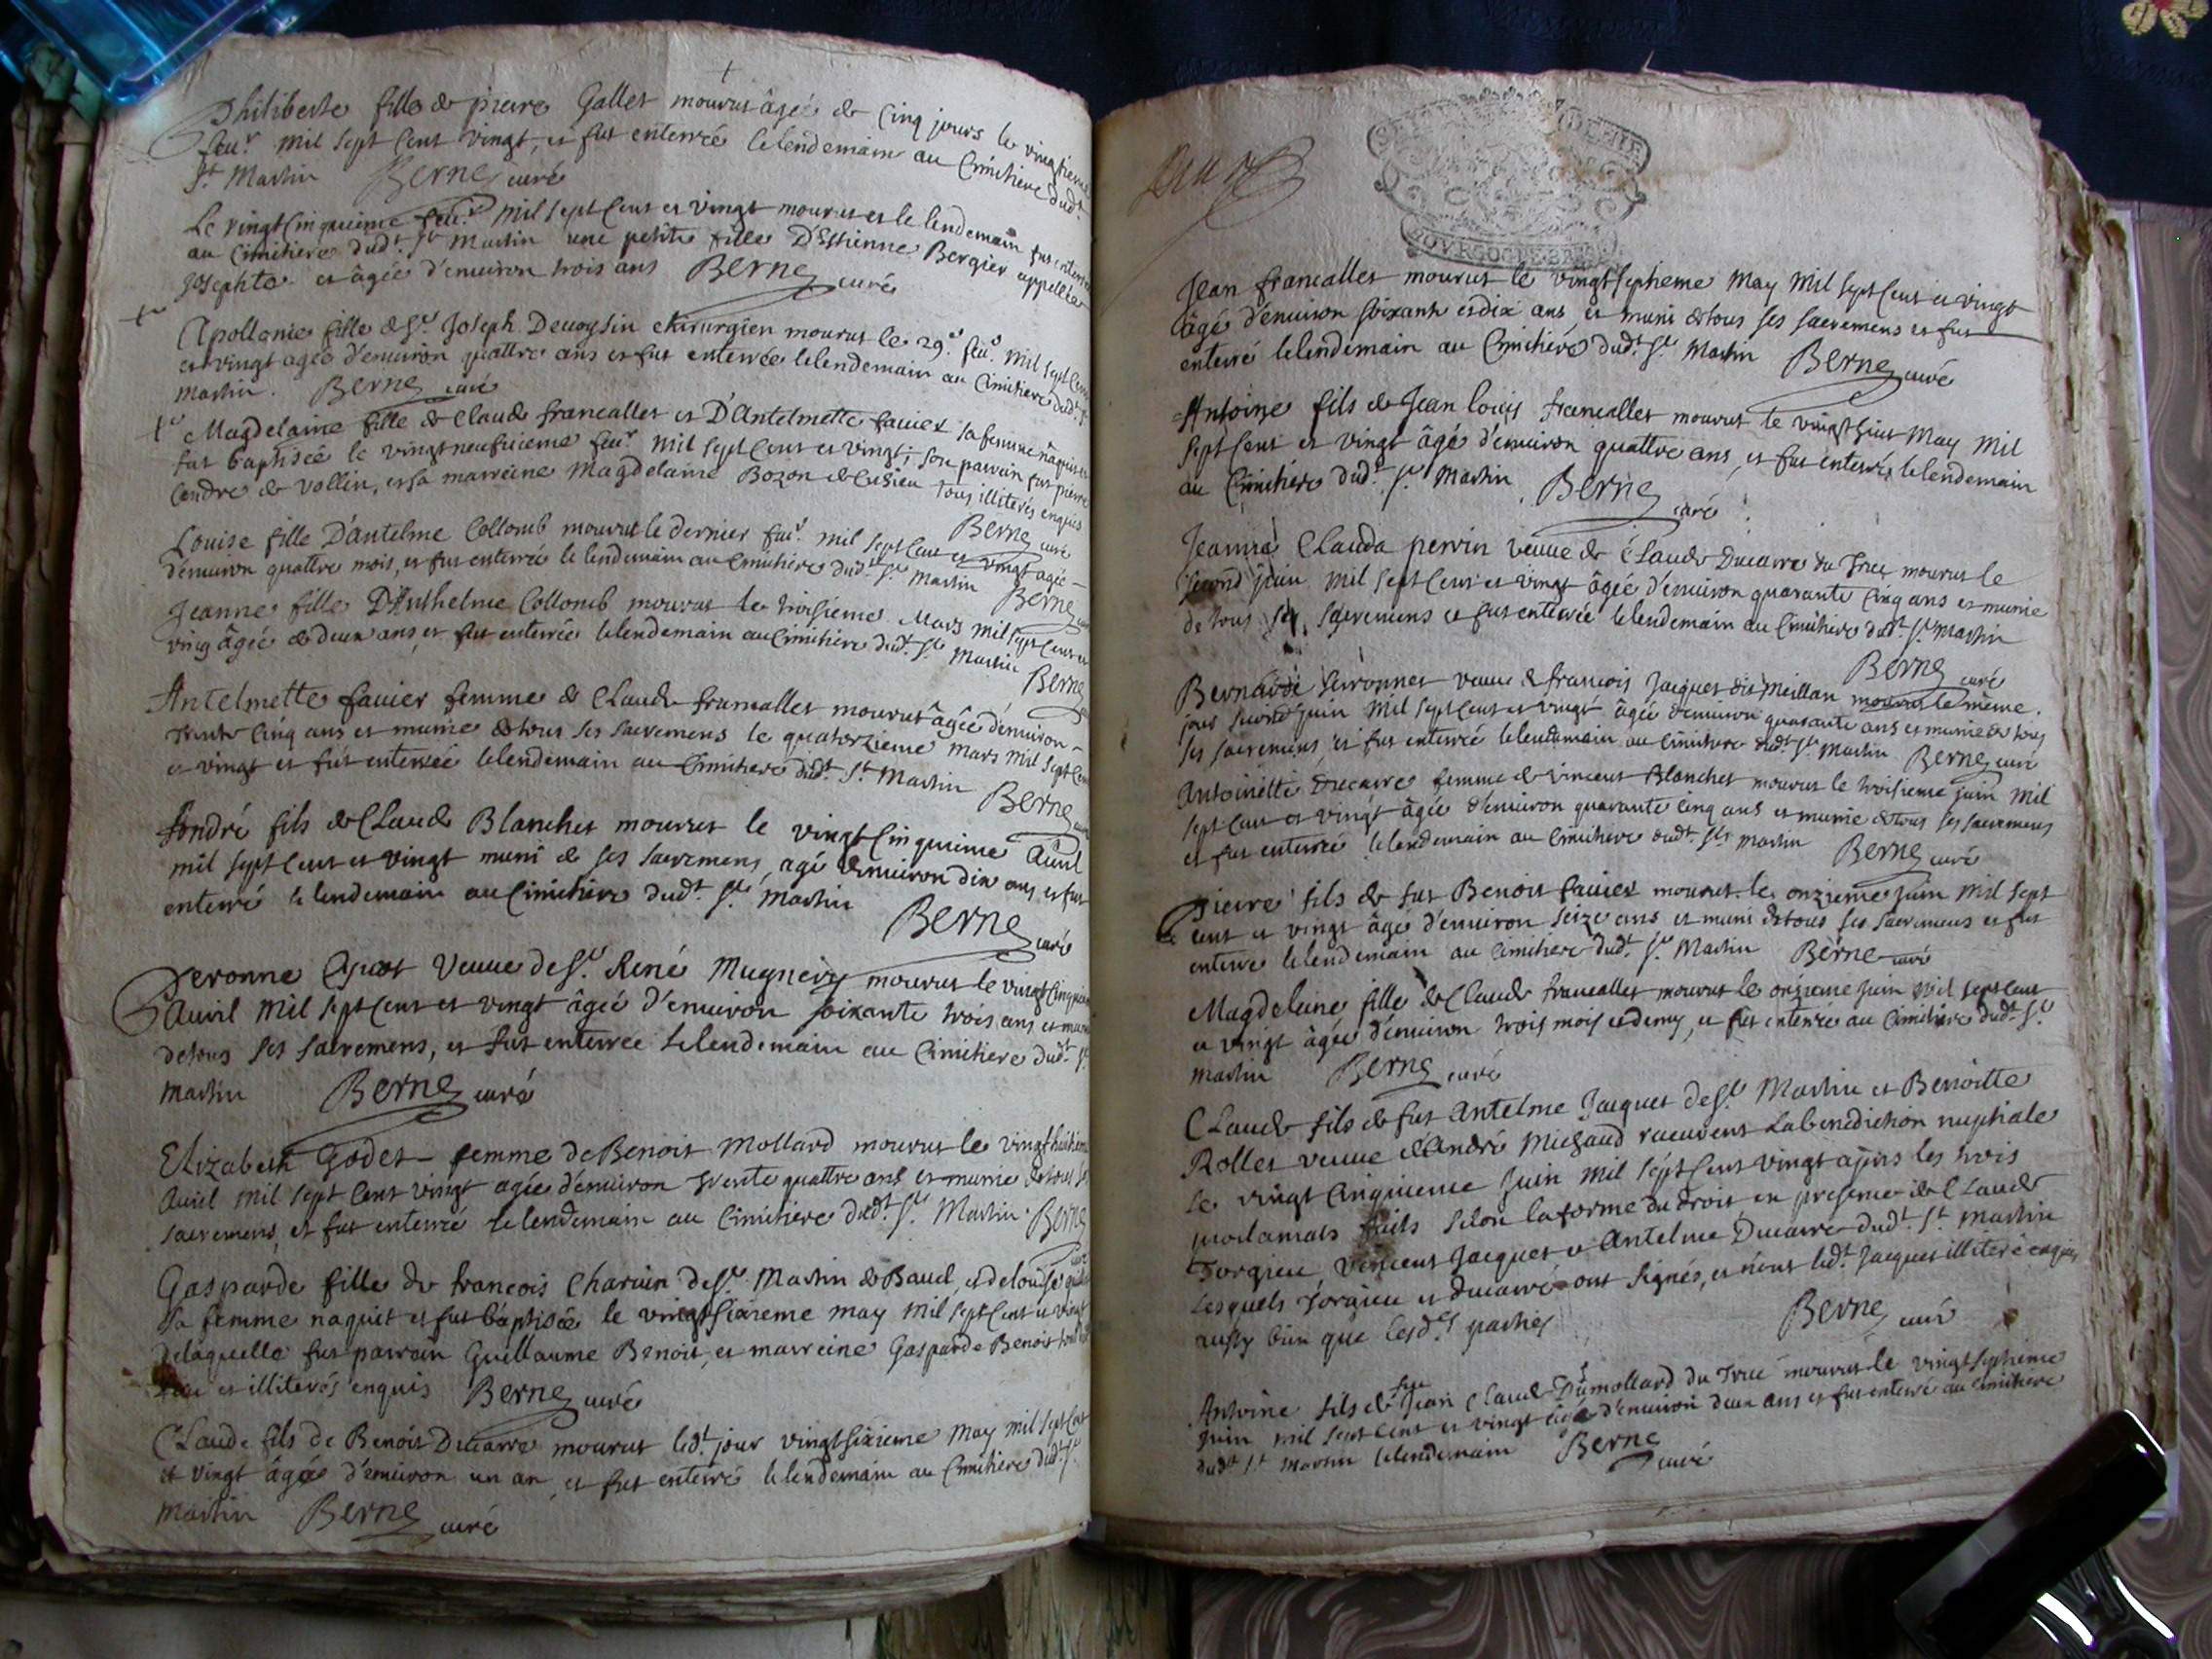 Philiberte fille de pierre Gallet mourut âgée de Cinq jours le vingtieme
feu.r mil sept Cent vingt, et fut enterrée le lendemain au Cimitiere dud.t
S.t Martin Berne curé
Le vingt Cinquieme feu.r mil sept Cent et vingt mourut et le lendemain fut
au Cimitiere dud.t S.t Martin une petite fille D'Estienne Bergier appellée
Josephte et âgée d'enuiron trois ans Berne curé
Apollonie fille de S.r Joseph Deuoysin chirurgien mourut le 29.e feu.r mil sept Cent
et vingt agée d'enuiron quattre ans et fut enterrée le lendemain au Cimitiere dud.t
Martin. Berne curé
Magdelaine fille de Claude francallet et D'Antelmette fauier sa femme nâquit et
fut baptisée le vingt neufuieme feu.r mil sept Cent et vingt; son parrain fut pierre
Cendre de vollin, et sa marreine Magdelaine Bozon de Cusieu tous illiterés enquis
Berne curé
Louise fille D'antelme Collomb mourut le dernier feu.r mil sept Cent et vingt agée
d'enuiron quattre mois, et fut enterrée le lendemain au Cimitiere dud.t S.t Martin
Berne
Jeanne fille D'Anthelme Collomb mourut le troisieme Mars mil sept Cent et
ving âgée de deux ans et fut enterrée le lendemain au Cimitiere dud.t S.t Martin
Berne
Antelmette fauier femme de Claude francallet mourut âgée d'enuiron
trente Cinq ans et munie de tous ses sacremens le quatorzieme Mars mil sept Cent
et vingt et fut enterrée le lendemain au Cimitiere dud.t S.t Martin
Berne
André fils de Claude Blanchet mourut le vingt Cinquieme Auril
mil sept Cent et vingt muni de ses sacremens, agé d'enuiron dix ans et fut
enterré le lendemain au Cimitiere dud.t S.t Martin
Berne curé
Peronne veuue de S.r René Mugnery mourut le vingt Cinquieme
Auril mil sept Cent et vingt âgée d'enuiron soixante trois ans et munie
de tous ses sacremens, et fut enterrée le lendemain au Cimitiere dud.t S.t
Martin Berne curé
Elizabeth Godet femme de Benoit Mollard mourut le vingt huitieme
Auril mil sept Cent vingt agée d'enuiron trente quattre ans et munie de tous ses
sacremens, et fut enterrée le lendemain au Cimitiere dud.t S.t Martin Berne
Gasparde fille de francois Charuin de S.t Martin de Bauel, et de louise
sa femme naquit et fut baptisée le vingt sixieme may mil sept Cent et vingt
de laquelle fut parrain Guillaume Benoit, et marreine Gasparde Benoit
et illiterés enquis Berne curé
Claude fils de Benoit Ducarre mourut led.t jour vingt sixieme May mil sept Cent
et vingt âgé d'enuiron un an et fut enterré le lendemain au Cimitiere dud.t S.t
Martin Berne curé
BOVRGOGNE.BR
Jean francallet mourut le vingt septieme May mil sept Cent et vingt
âgé d'enuiron soixante et dix ans, et muni de tous ses sacremens et fut
enterré le lendemain au Cimitiere dud.t S.t Martin Berne curé
Antoine fils de Jean louis francallet mourut le vingt huit May mil
sept Cent et vingt âgé d'enuiron quattre ans, et fut enterré le lendemain
au Cimitiere dud.t S.t Martin Berne curé
Jeanne Clauda perrin veuue de Claude Ducarre du Truc mourut le
second juin mil sept Cent et vingt âgée d'enuiron quarante Cinq ans et munie
de tous ses sacremens et fut enterrée le lendemain au Cimitiere dud.t S.t Martin
Berne curé
Bernarde veuue de francois Jacquet dit Meillan mourut le même
jour second juin mil sept Cent et vingt âgée d'enuiron quarante ans et munie de tous
ses sacremens, et fut enterrée le lendemain au Cimitiere dud.t S.t Martin Berne curé
Antoinette Ducarre femme de vincent Blanchet mourut le troisieme juin mil
sept Cent et vingt âgée d'enuiron quarante Cinq ans et munie de tous ses sacremens
et fut enterrée le lendemain au Cimitiere dud.t S.t Martin Berne curé
Pierre fils de fut Benoit fauier mourut le onzieme juin mil sept
cent et vingt âgé d'enuiron seize ans et muni de tous ses sacremens et fut
enterré le lendemain au Cimitiere dud.t S.t Martin Berne curé
Magdeleine fille de Claude francallet mourut le onzieme juin mil sept cent
et vingt âgée d'enuiron trois mois et demy, et fut enterrée au Cimitiere dud.t S.t
Martin Berne curé
Claude fils de fut Antelme Jacquet de S.t Martin et Benoitte
Rollet veuue d'André Michaud receurent la benediction nuptiale
le vingt Cinquieme juin mil sept Cent vingt apres les trois
proclamats faits selon la forme du droit, en presence de Claude
Torgieu, Vincent Jacquet et Antelme Ducarre dud.t S.t Martin
lesquels Torgieu et Ducarre ont signés, et nont led.t Jacquet illiteré enquis,
aussy bien que lesd.es parties
Berne curé
Antoine fils de feu Jean Claude Dumollard du Truc mourut le vingt septieme
juin mil sept Cent et vingt âgé d'enuiron deux ans et fut enterré au Cimitiere
dud.t S.t Martin le lendemain Berne curé